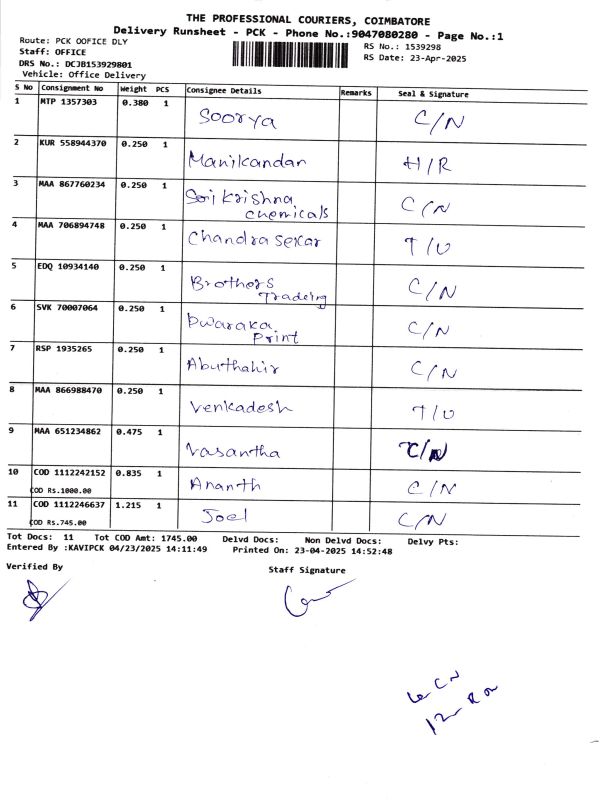 THE PROFESSIONAL COURIERS, COIMBATORE
Delivery Runsheet - PCK - Phone No.:9047080280 - Page No.:1
Route: PCK OOFICE DLY RS No.: 1539298
Staff: OFFICE RS Date: 23-Apr-2025
DRS No.: DCJB153929801
Vehicle: Office Delivery
S No Consignment No Weight PCS Consignee Details Remarks Seal & Signature
1 MTP 1357303 0.380 1 Soorya C/N
2 KUR 558944370 0.250 1 Manikandan H/R
3 MAA 867760234 0.250 1 Sri Krishna C/N
chemicals
4 MAA 706894748 0.250 1 Chandra sekar T/U
5 EDQ 10934140 0.250 1 Brothers C/N
Trading
6 SVK 70007064 0.250 1 Dwaraka C/N
Print
7 RSP 1935265 0.250 1 Abuthahir C/N
8 MAA 866988470 0.250 1 Venkadesh T/U
9 MAA 651234862 0.475 1 Vasantha C/N
10 COD 1112242152 0.835 1 Ananth C/N
COD Rs.1000.00
11 COD 1112246637 1.215 1 Joel C/N
COD Rs.745.00
Tot Docs: 11 Tot COD Amt: 1745.00 Delvd Docs: Non Delvd Docs: Delvy Pts:
Entered By :KAVIPCK 04/23/2025 14:11:49 Printed On: 23-04-2025 14:52:48
Verified By Staff Signature